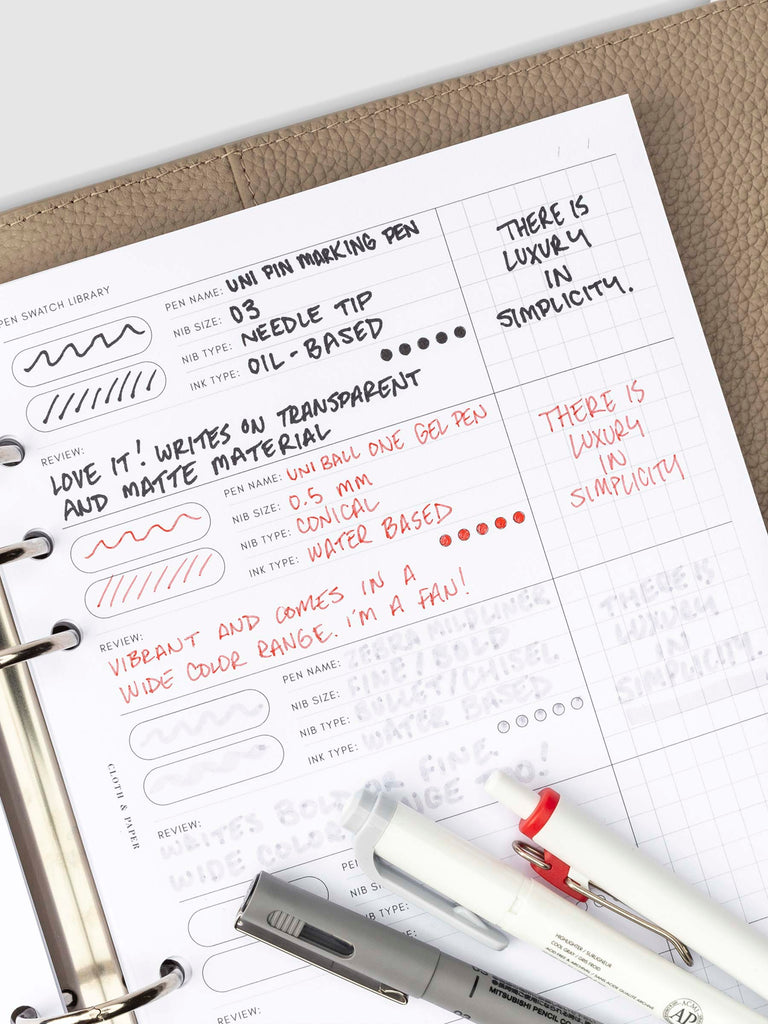 PEN SWATCH LIBRARY
PEN NAME: UNI PIN MARKING PEN
NIB SIZE: 03
NIB TYPE: NEEDLE TIP
INK TYPE: OIL-BASED
THERE IS
LUXURY
IN
SIMPLICITY.
REVIEW:
LOVE IT! WRITES ON TRANSPARENT
AND MATTE MATERIAL
PEN NAME: UNI BALL ONE GEL PEN
NIB SIZE: 0.5 MM
NIB TYPE: CONICAL
INK TYPE: WATER BASED
THERE IS
LUXURY
IN
SIMPLICITY
REVIEW:
VIBRANT AND COMES IN A
WIDE COLOR RANGE. I'M A FAN!
PEN NAME: ZEBRA MILDLINER
NIB SIZE: FINE/BOLD
NIB TYPE: BULLET/CHISEL
INK TYPE: WATER BASED
THERE IS
LUXURY
IN
SIMPLICITY.
REVIEW:
WRITES BOLD OR FINE.
WIDE COLOR RANGE TOO!
CLOTH & PAPER
NIB SIZE:
INK TYPE:
REVIEW:
HIGHLIGHTER / SURLIGNEUR
COOL GRAY / GRIS FROID
ACMI
AP
MITSUBISHI PENCIL CO
03